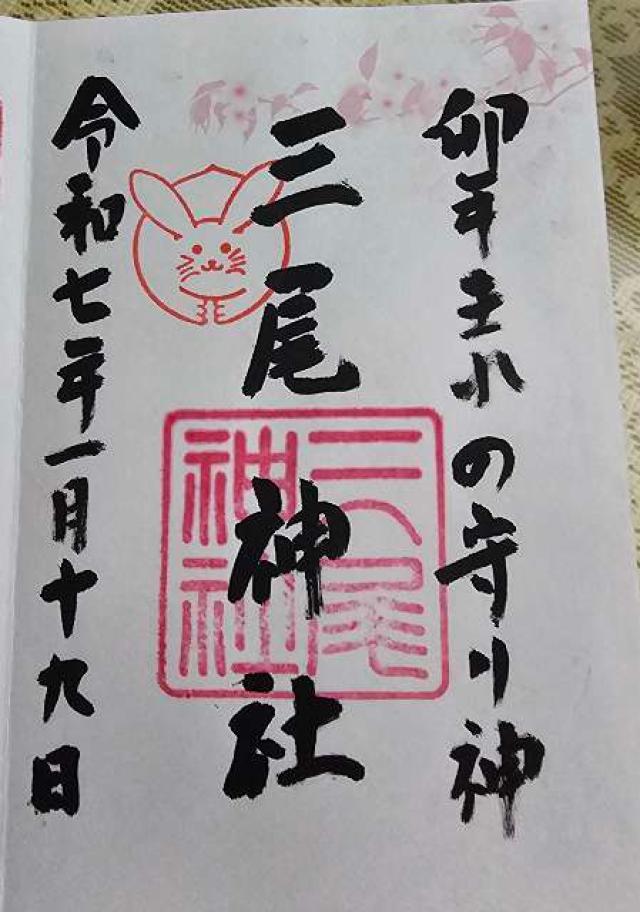 卯年生れの守り神
三尾神社
三尾神社
令和七年一月十九日